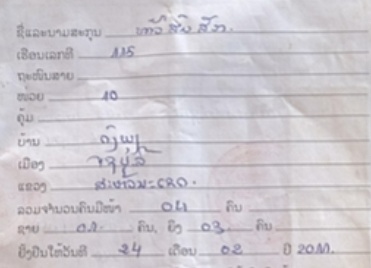 ຊື່ແລະນາມສະກຸນ ທ້າວ ສົມ ສັກ.
ເຮືອນເລກທີ 115
ຖະໜົນສາຍ
ໜ່ວຍ 10
ຄຸ້ມ
ບ້ານ
ເມືອງ
ແຂວງ ສະຫວັນນະເຂດ.
ລວມຈຳນວນຄົນມີໜ້າ 04 ຄົນ
ຊາຍ ຄົນ, ຍິງ 03. ຄົນ
ຍັງຢືນໃຫ້ວັນທີ 24 ເດືອນ 02 ປີ